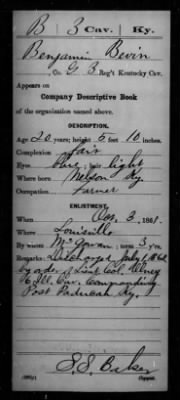 B 3 Cav. Ky.
Benjamin Bevin
Co. G 3 Reg't Kentucky Cav.
Appears on
Company Descriptive Book
of the organization named above.
DESCRIPTION.
Age 20 years; height 5 feet 10 inches.
Complexion fair
Eyes blue; hair light
Where born Nelson Ky
Occupation Farmer
ENLISTMENT.
When Oct. 3, 1861.
Where Louisville
By whom ; term 3 y'rs.
Remarks: Discharged July 1, 1862
by order of Lieut Col. Olney
6 Ill. Cav. Commanding
Post Paducah Ky.
S. S. Baker
Copyist.